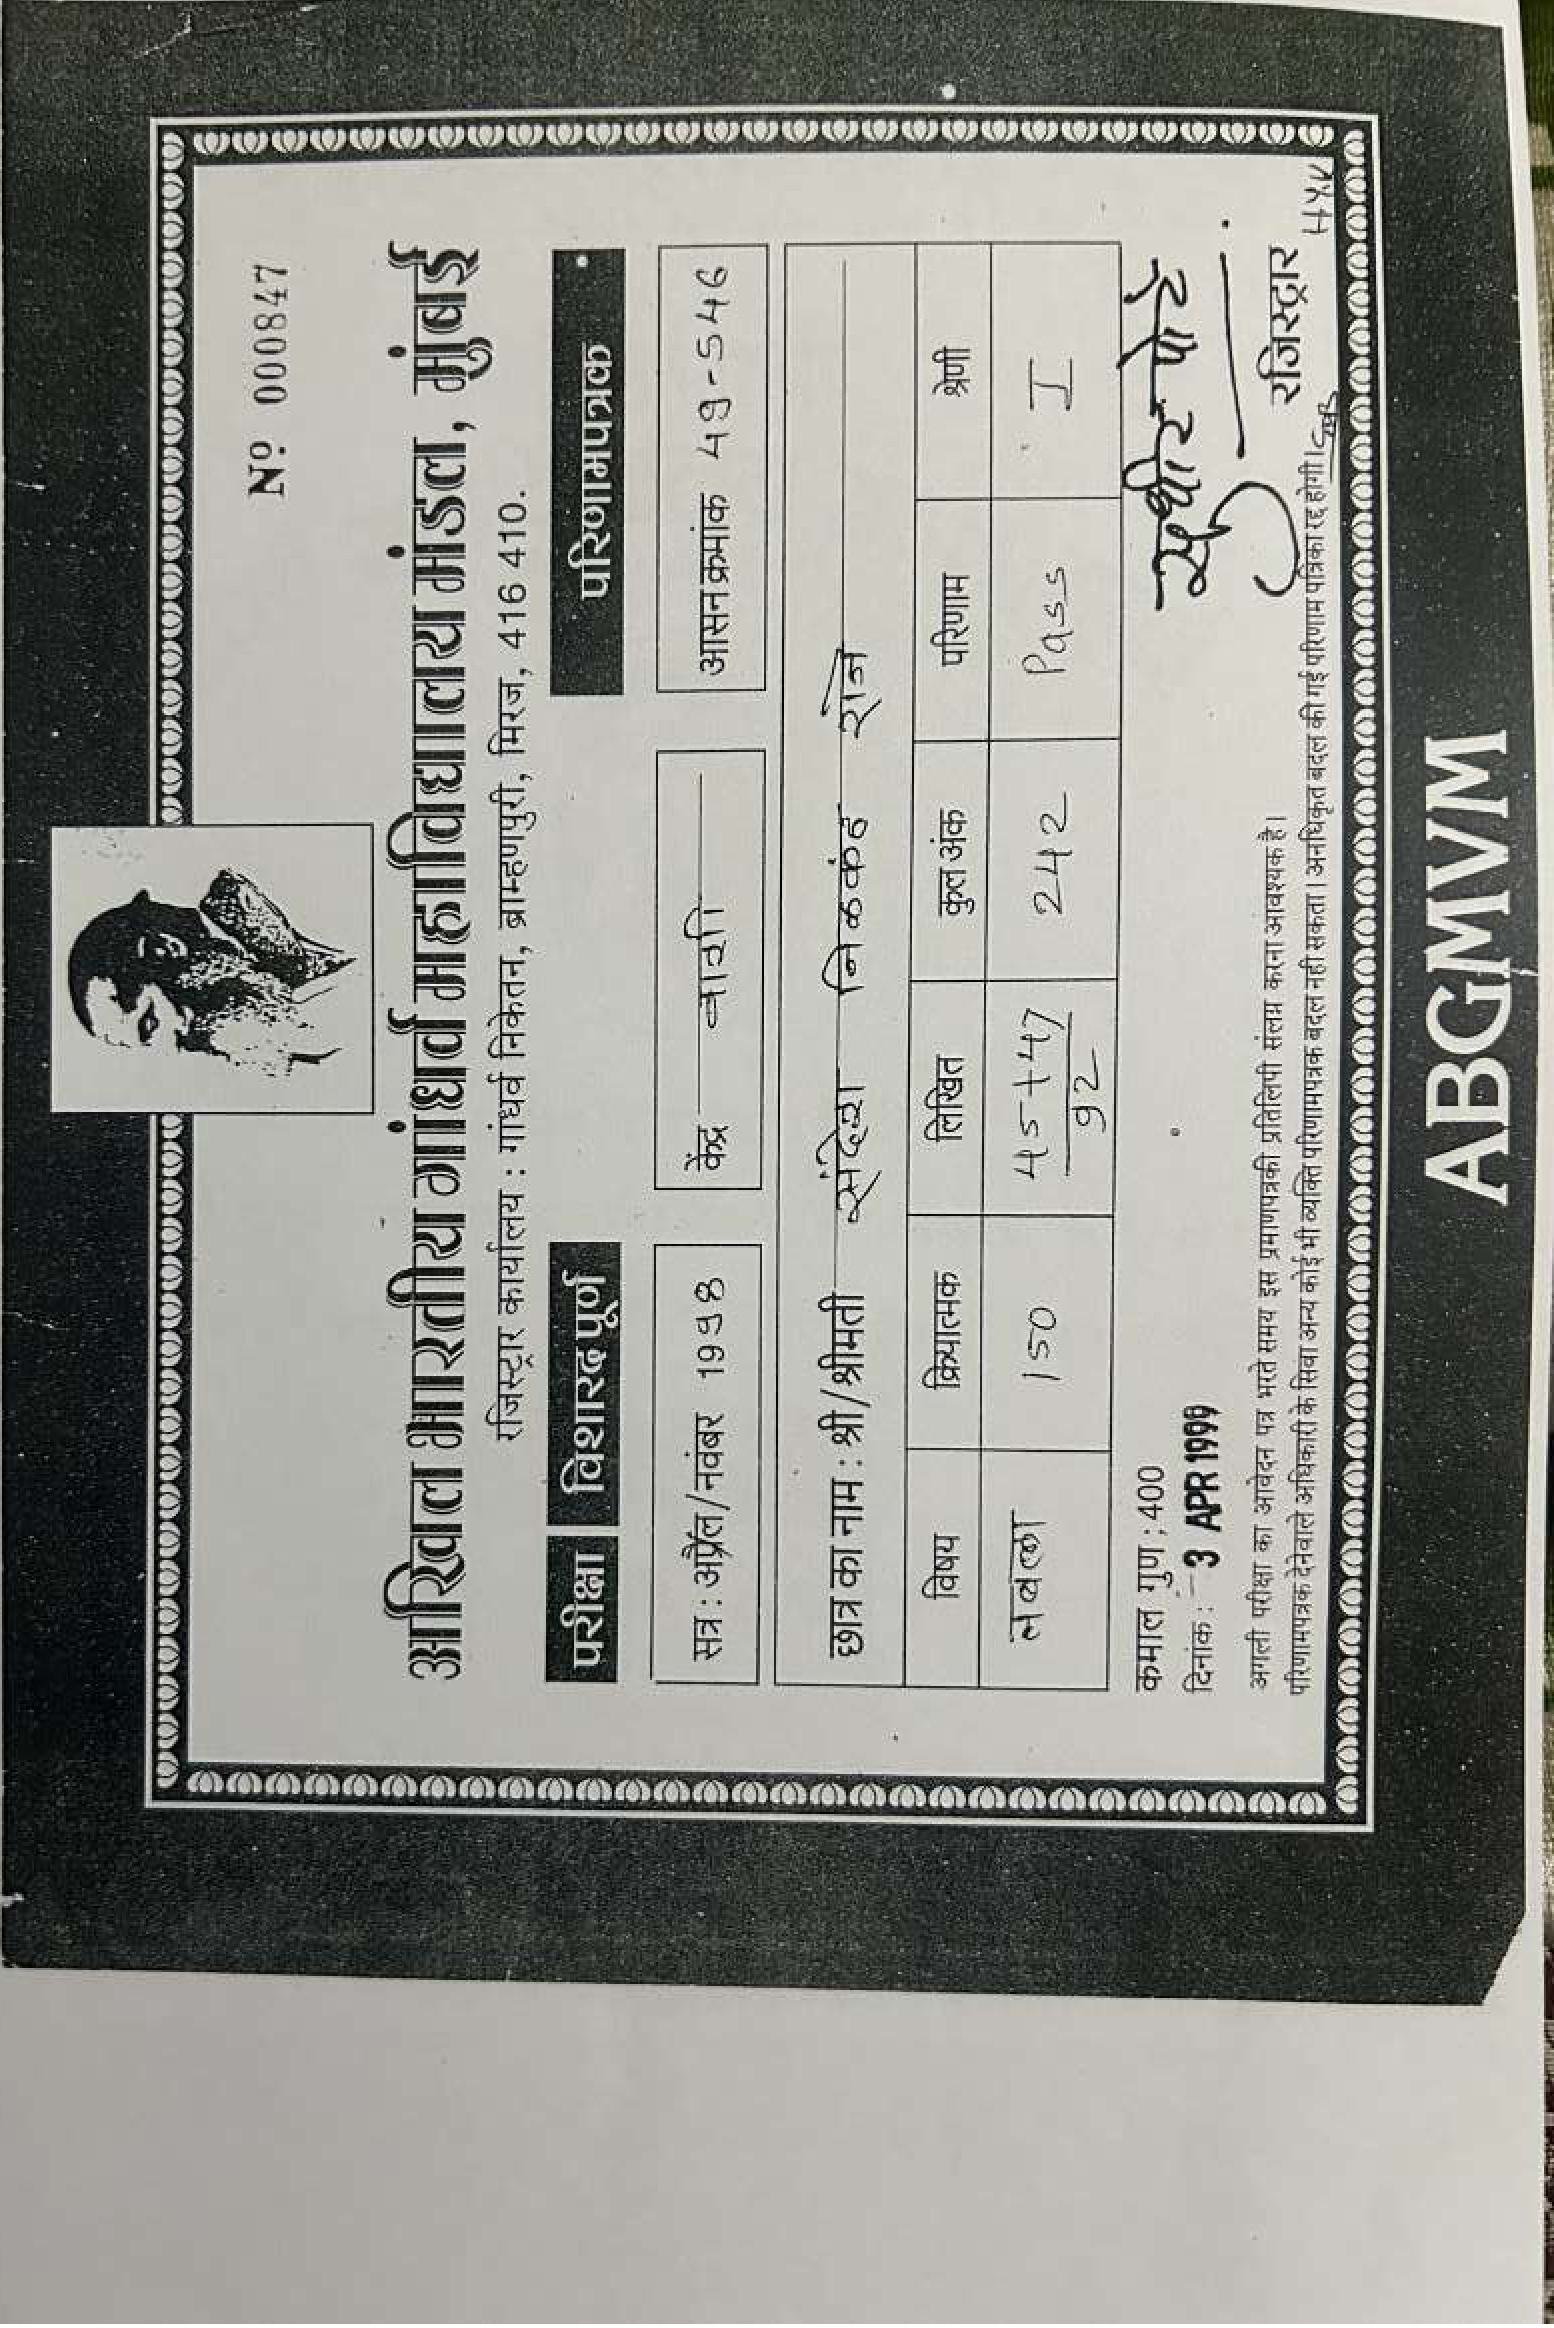 Nº 000847
अखिल भारतीय गांधर्व महाविद्यालय मंडल, मुंबई
रजिस्ट्रार कार्यालय : गांधर्व निकेतन, ब्राम्हणपुरी, मिरज, 416 410.
परीक्षा विशारद पूर्ण परिणामपत्रक
सत्र : अप्रैल/नवंबर 1998 केंद्र वाशी आसन क्रमांक 49-546
छात्र का नाम : श्री/श्रीमती संदेश निळकंठ राजे
विषय क्रियात्मक लिखित कुल अंक परिणाम श्रेणी
तबला 150 45+47 242 Pass I
92
कमाल गुण ; 400
दिनांक : 3 APR 1999
सुधीर पोटे
रजिस्ट्रार
अगली परीक्षा का आवेदन पत्र भरते समय इस प्रमाणपत्रकी प्रतिलिपी संलग्न करना आवश्यक है।
परिणामपत्रक देनेवाले अधिकारी के सिवा अन्य कोई भी व्यक्ति परिणामपत्रक बदल नही सकता। अनधिकृत बदल की गई परिणाम पत्रिका रद्द होगी।
ABGMVM